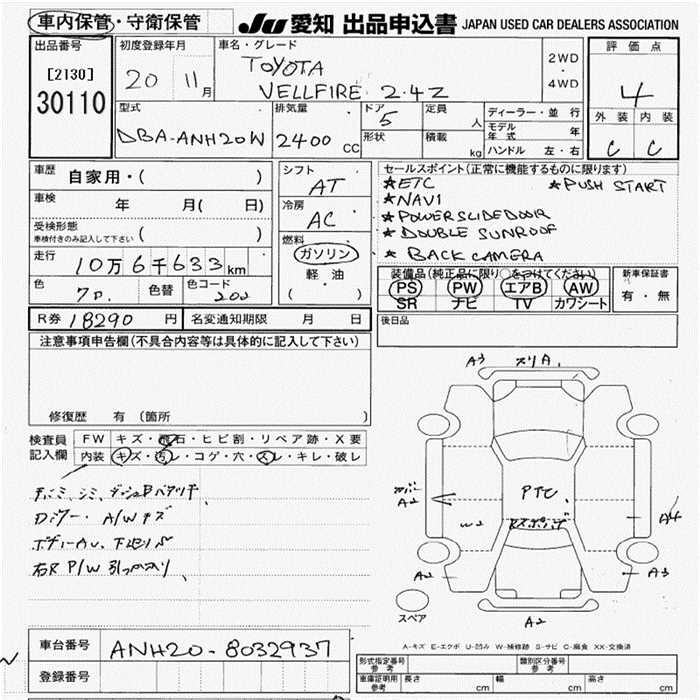 車内保管・守衛保管 JU 愛知 出品申込書 JAPAN USED CAR DEALERS ASSOCIATION
出品番号
[2130]
30110
初度登録年月
20 11月
車名・グレード
TOYOTA
VELLFIRE 2.4Z
2WD
・
4WD
評価点
4
外装 内装
C C
型式
DBA-ANH20W
排気量
2400 CC
ドア
5
形状
定員
人
積載
kg
ディーラー・並行
モデル年式 年
ハンドル 左・右
車歴 自家用・( )
車検 年 月( 日)
受検形態
車検付きのみ記入して下さい ( )
走行 10万6千633km
色 色替 色コード 202
シフト
AT
冷房
AC
燃料
ガソリン
軽油
( )
セールスポイント(正常に機能するものに限ります)
★ETC ★PUSH START
★NAVI
★POWER SLIDE DOOR
★DOUBLE SUNROOF
★BACK CAMERA
装備品(純正品に限り○をつけてください)
PS PW エアB AW
SR ナビ TV カワシート
新車保証書
有・無
R券 18290 円 名変通知期限 月 日
後日品
注意事項申告欄(不具合内容等は具体的に記入して下さい)
修復歴 有(箇所 )
検査員記入欄
FW キズ・飛石・ヒビ割・リペア跡・X要
内装 キズ・汚レ・コゲ・穴・スレ・キレ・破レ
A/Wキズ
右R P/W 引っかかり
A3 スリA.
A2
PTC
W2
A4
A2
A3
A2
スペア
A-キズ E-エクボ U-凹み W-補修跡 S-サビ C-腐食 XX-交換済
車台番号 ANH20-8032937
登録番号
形式指定番号 参考
類別区分番号 参考
車庫証明用 参考 長さ cm 幅 cm 高さ cm